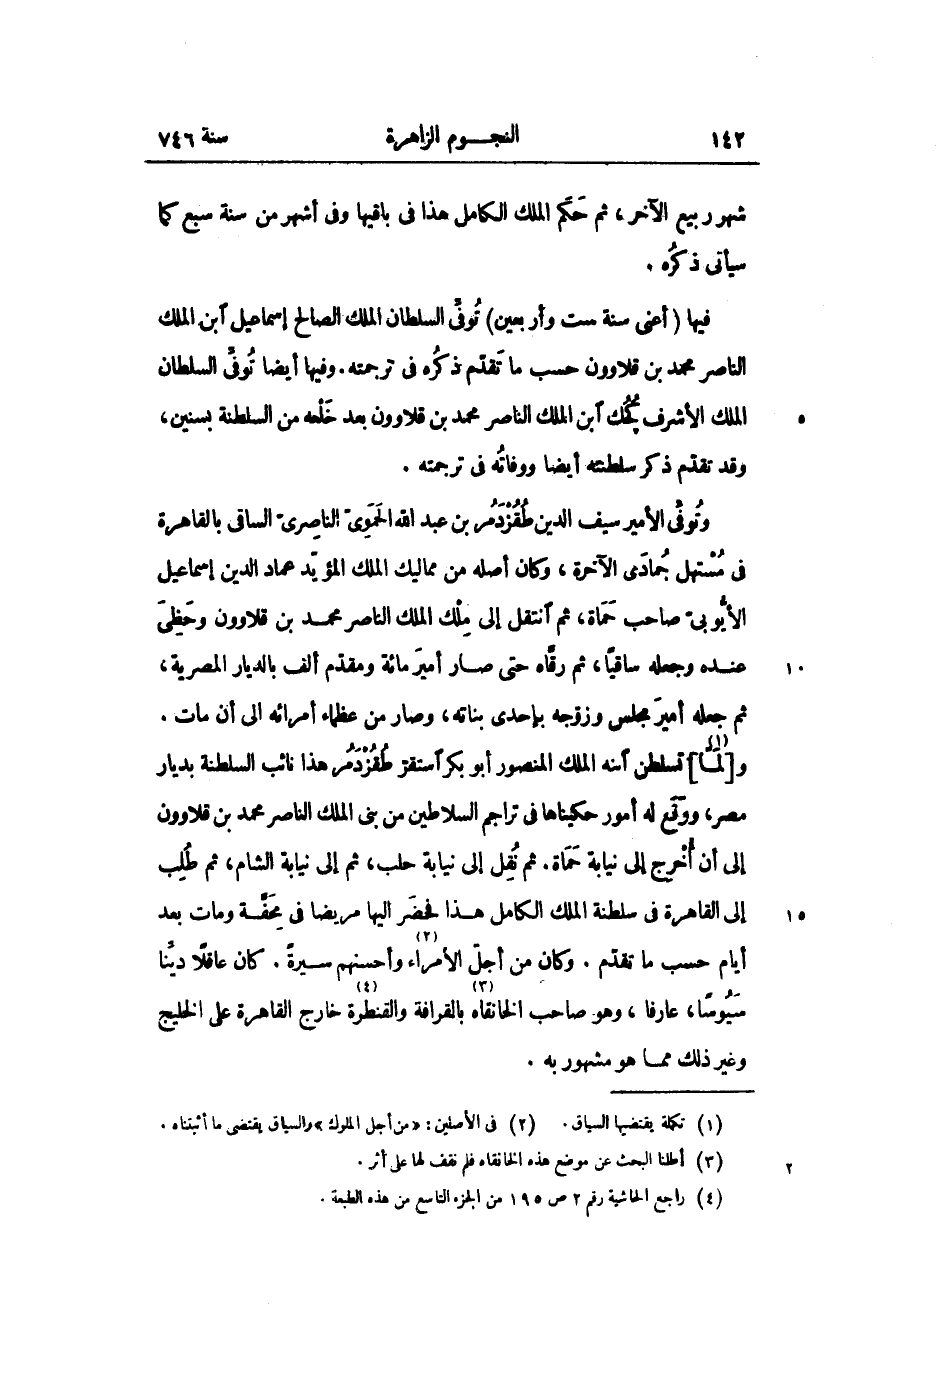 ١٤٢ النجـــوم الزاهرة سنة ٧٤٦
شهر ربيع الآخر، ثم حَكَم الملك الكامل هذا فى باقيها وفى أشهر من سنة سبع كما
سيأتى ذكرُه .
فيها (أعنى سنة ست وأربعين) تُوفِّى السلطان الملك الصالح إسماعيل آبن الملك
الناصر محمد بن قلاوون حسب ما تقدّم ذكرُه فى ترجمته. وفيها أيضا تُوفِّى السلطان
الملك الأشرف كُجُك آبن الملك الناصر محمد بن قلاوون بعد خَلْعه من السلطنة بسنين، ٥
وقد تقدّم ذكر سلطنته أيضا ووفاتُه فى ترجمته .
وتُوفِّى الأمير سيف الدين طُقُزْدَمُر بن عبد الله الحَمَوِىّ الناصرىّ الساقى بالقاهرة
فى مُسْتهل جُمادَى الآخرة ، وكان أصله من مماليك الملك المؤيّد عماد الدين إسماعيل
الأيُّوبىّ صاحب حَمَاة، ثم آنتقل إلى مِلْك الملك الناصر محمــد بن قلاوون وحَظِىَ
عنــده وجعله ساقيًا، ثم رقّاه حتى صــار أميرَ مائة ومقدّم ألف بالديار المصرية، ١٠
ثم جعله أميرَ مجلس وزوّجه بإحدى بناته، وصار من عظماء أمرائه الى أن مات .
و[لمّــا](١) تسلطن آبنه الملك المنصور أبو بكر آستقرّ طُقُزْدَمُر هذا نائب السلطنة بديار
مصر، ووقَع له أمور حكيناها فى تراجم السلاطين من بنى الملك الناصر محمد بن قلاوون
إلى أن أُخْرِج إلى نيابة حَمَاة. ثم نُقِل إلى نيابة حلب، ثم إلى نيابة الشام، ثم طُلِب
إلى القاهرة فى سلطنة الملك الكامل هــذا فحضَر اليها مريضا فى مِحَفَّــة ومات بعد ١٥
أيام حسب ما تقدّم . وكان من أجلّ الأمراء(٢) وأحسنهم ســيرةً . كان عاقلًا ديِّنًا
سَيُوسًا، عارفا ، وهو صاحب الخانقاه(٣) بالقرافة والقنطرة(٤) خارج القاهرة على الخليج
وغير ذلك ممــا هو مشهور به .
(١) تكملة يقتضيها السياق. (٢) فى الأصلين: «من أجل الملوك» والسياق يقتضى ما أثبتناه .
(٣) أطلنا البحث عن موضع هذه الخانقاه فلم نقف لها على أثر . ٢
(٤) راجع الحاشية رقم ٢ ص ١٩٥ من الجزء التاسع من هذه الطبعة .